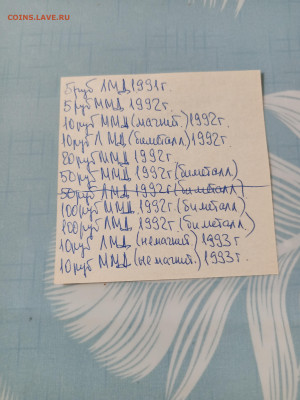 COINS.LAVE.RU
5руб ЛМД 1991г.
5руб ММД 1992г.
10руб ММД (магнит.) 1992г.
10руб ЛМД (биметалл) 1992г.
20руб ММД 1992г.
50руб ММД 1992г (биметалл)
50руб ЛМД 1992г (биметалл)
100руб ММД 1992г. (биметалл)
100руб ЛМД 1992г (биметалл)
10руб ЛМД (немагнит) 1993г
10руб ММД (немагнит.) 1993г.